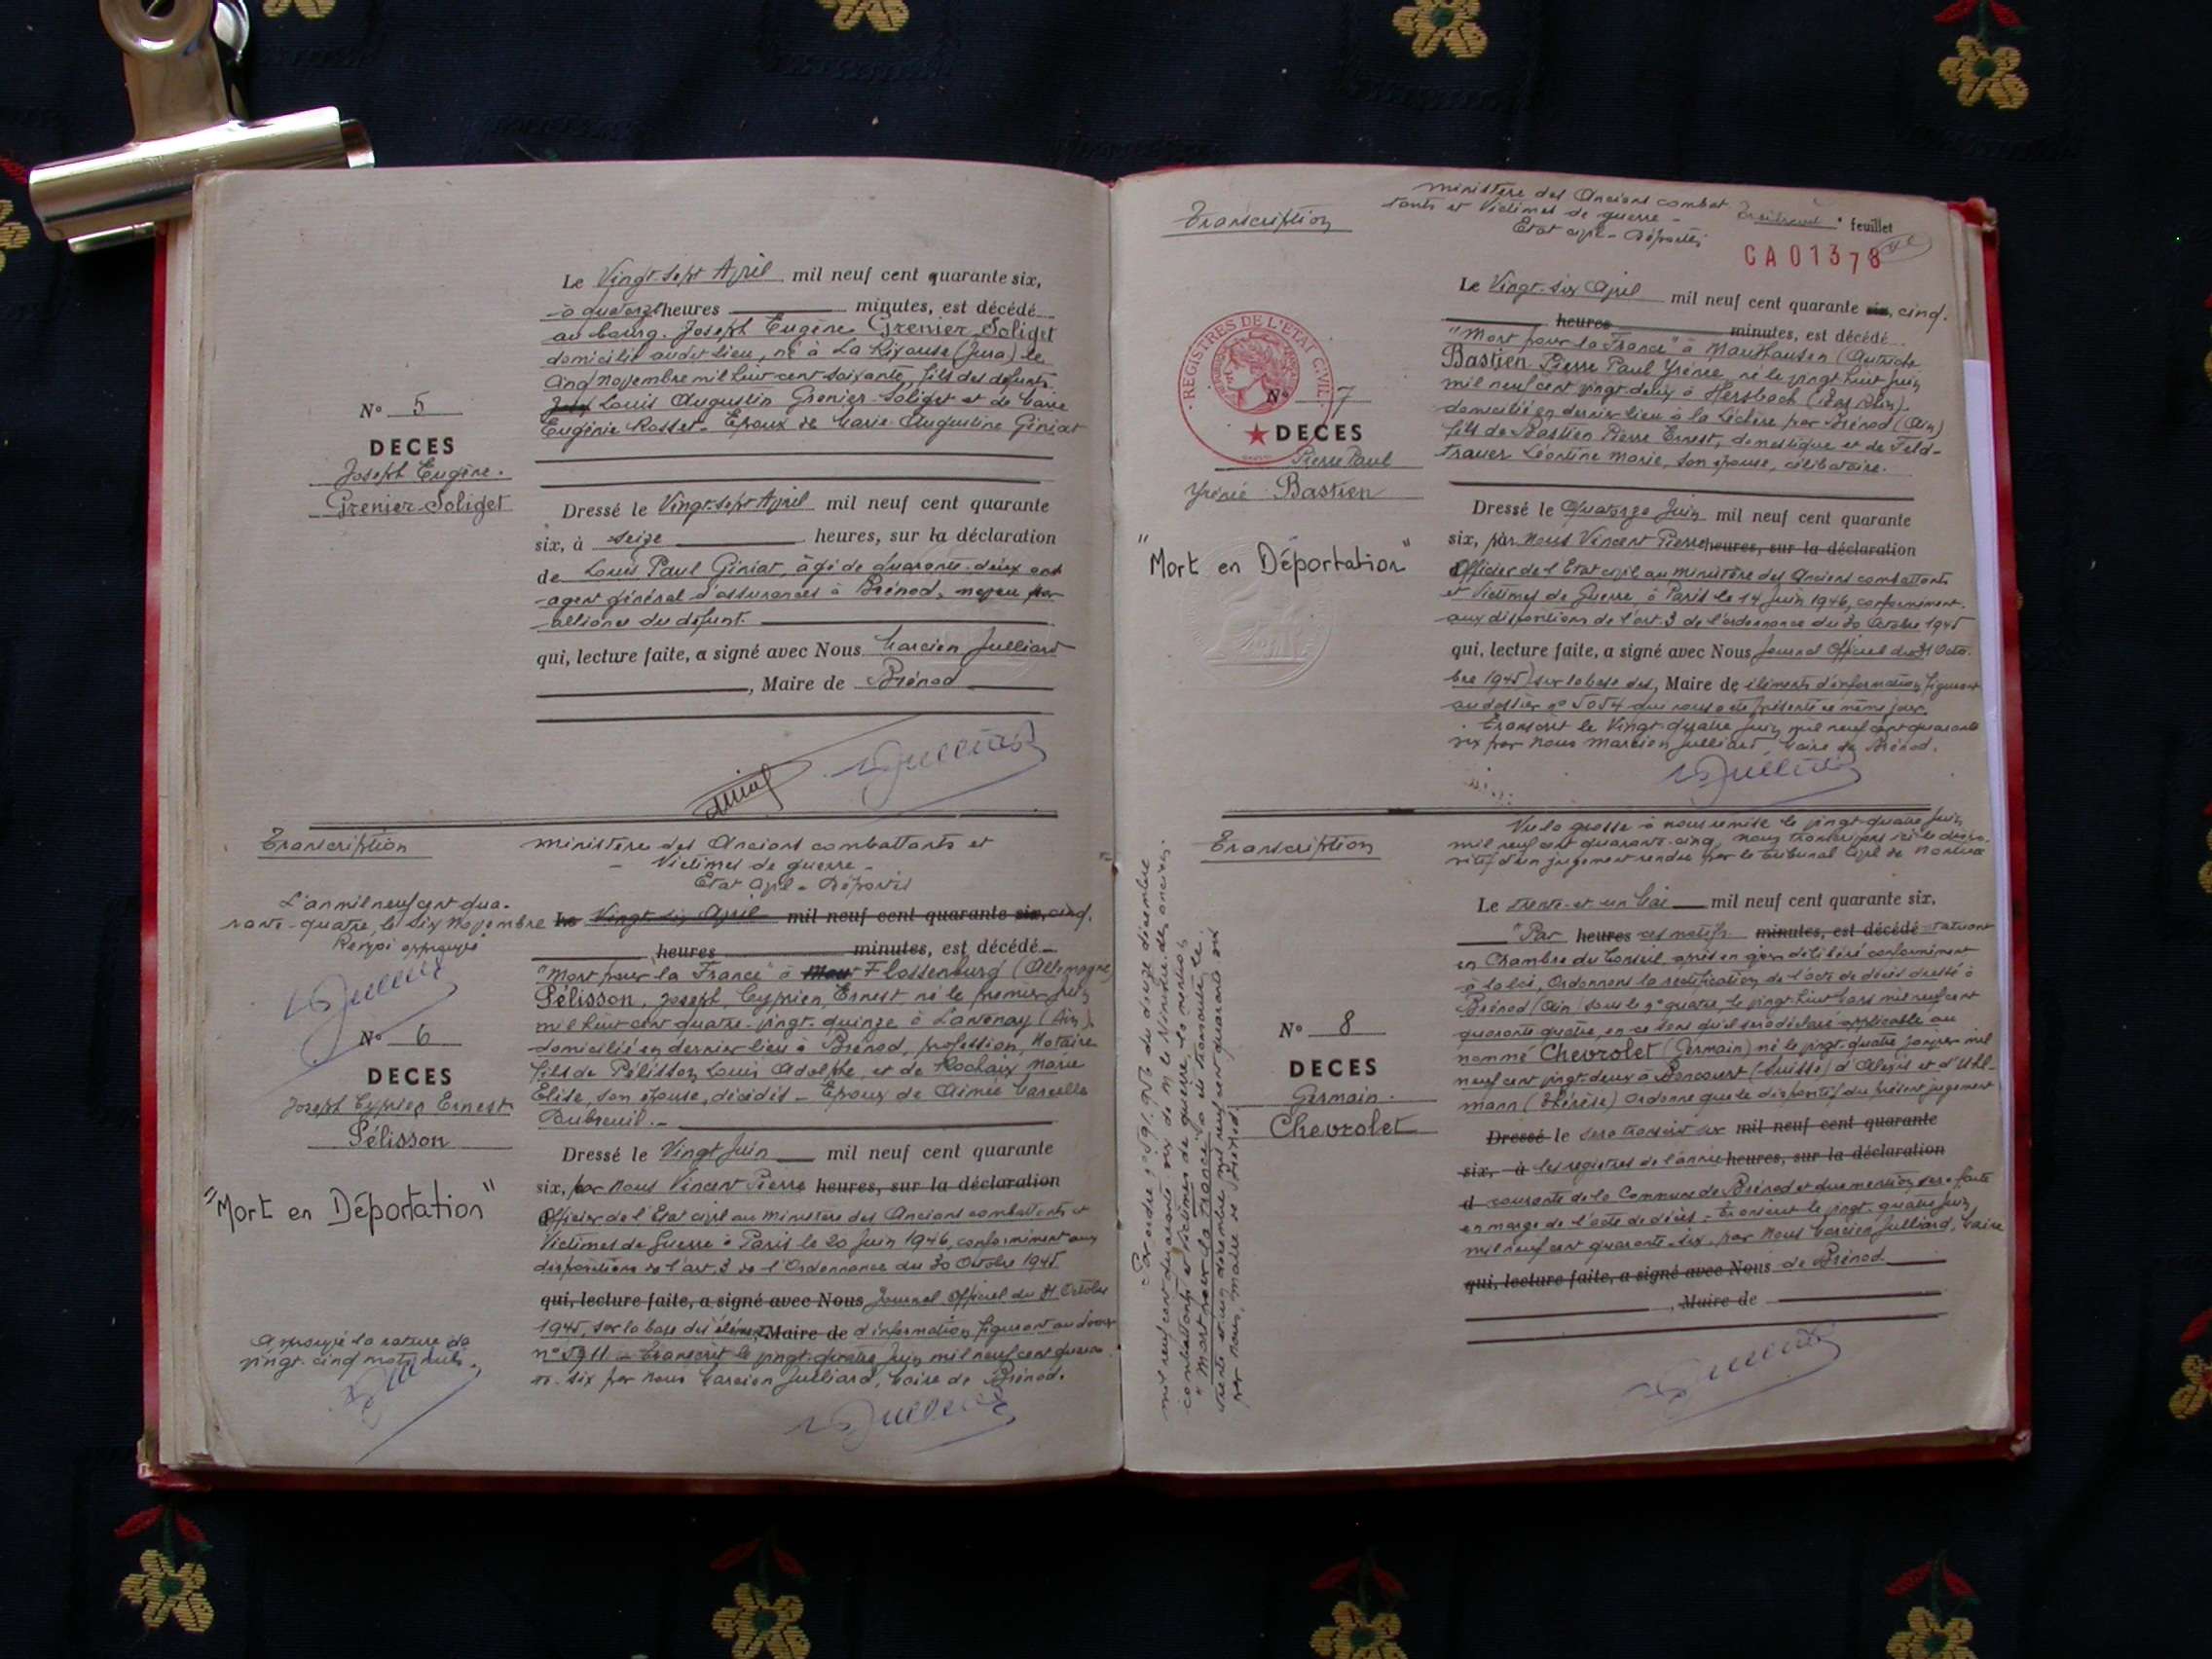 Le Vingt-sept Avril mil neuf cent quarante six,
à quatorze heures minutes, est décédé
au bourg. Joseph Eugène Grenier-Soliget
domicilié audit lieu, né à La Rixouse (Jura) le
cinq novembre mil huit cent soixante, fils des défunts
Louis Augustin Grenier-Soliget et de Marie
Eugénie Rosset - Epoux de Marie Augustine Giniat
N° 5
DECES
Joseph Eugène.
Grenier-Soliget
Dressé le Vingt-sept Avril mil neuf cent quarante
six, à seize heures, sur la déclaration
de Louis Paul Giniat, âgé de quarante-deux ans
agent général d'assurances à Brénod, neveu par
alliance du défunt.
qui, lecture faite, a signé avec Nous Marcien Julliard
, Maire de Brénod
Transcription
Ministère des Anciens combattants et
- Victimes de guerre -
Etat civil - Déportés
L'an mil neuf cent qua-
rante-quatre, le six Novembre
Renvoi approuvé
Le Vingt-six Avril mil neuf cent quarante six, cinq.
heures minutes, est décédé
"Mort pour la France" à Flossenburg (Allemagne)
Pélisson, Joseph, Cyprien, Ernest né le premier Juin
mil huit cent quatre-vingt-quinze à Lavenay (Ain).
domicilié en dernier lieu à Brénod, profession, Notaire
fils de Pélisson Louis Adolphe et de Rochaix Marie
Elise, son épouse, décédés - Epoux de Aimée Marcelle
Dubreuil.-
N° 6
DECES
Joseph Cyprien Ernest
Pélisson
"Mort en Déportation"
Dressé le Vingt Juin mil neuf cent quarante
six, par Nous Vincent Pierre heures, sur la déclaration
Officier de l'Etat civil au Ministère des Anciens combattants et
Victimes de Guerre à Paris le 20 Juin 1946, conformément aux
dispositions de l'art. 3 de l'Ordonnance du 30 Octobre 1945
qui, lecture faite, a signé avec Nous Journal Officiel du 31 Octobre
1945, sur la base des éléments Maire de d'information figurant au dossier
n° 5911 - Transcrit le vingt-quatre Juin mil neuf cent quaran-
te-six par Nous Marcien Julliard, Maire de Brénod.
Approuvé la rature de
vingt-cinq mots nuls.
Transcription
Ministère des Anciens combat
tants et Victimes de guerre -
Etat civil - Déportés
feuillet
CA01378
REGISTRES DE L'ETAT CIVIL
Le Vingt-six Avril mil neuf cent quarante six, cinq.
heures minutes, est décédé
"Mort pour la France" à Mauthausen (Autriche
Bastien Pierre Paul Yrénée, né le vingt huit Juin
mil neuf cent vingt-deux à Hersbach (Bas Rhin)
domicilié en dernier lieu à la Léchère par Brénod (Ain)
fils de Bastien Pierre Ernest, domestique et de Feld-
trauer Léontine Marie, son épouse, célibataire.
N° 7
DECES
Pierre Paul
Yrénée Bastien
"Mort en Déportation"
Dressé le Quatorze Juin mil neuf cent quarante
six, par Nous Vincent Pierre heures, sur la déclaration
Officier de l'Etat civil au Ministère des Anciens combattants
et Victimes de Guerre, à Paris le 14 Juin 1946, conformément
aux dispositions de l'art. 3 de l'ordonnance du 30 Octobre 1945
qui, lecture faite, a signé avec Nous Journal Officiel du 31 Octo-
bre 1945) sur la base des, Maire de éléments d'information figurant
au dossier n° 5054 qui nous a été présenté ce même jour.
Transcrit le Vingt-quatre Juin mil neuf cent quarante
six par Nous Marcien Julliard, Maire de Brénod.
Transcription
Vu la grosse à nous remise le vingt-quatre Juin
mil neuf cent quarante-cinq, nous transcrivons ici le dispo-
sitif d'un jugement rendu par le tribunal civil de Nantua
Le trente-et-un Mai mil neuf cent quarante six,
"Par heures ces motifs minutes, est décédé statuant
en Chambre du Conseil, après en avoir délibéré conformément
à la loi, Ordonnons la rectification de l'acte de décès dressé à
Brénod (Ain) sous le n° quatre, le vingt huit Mars mil neuf cent
quarante quatre, en ce sens qu'il sera déclaré applicable au
nommé Chevrolet (Germain) né le vingt quatre janvier mil
neuf cent vingt-deux à Boncourt (Suisse) d'Alexis et d'Uhl-
mann (Thérèse) Ordonne que le dispositif du présent jugement
Dressé le sera transcrit sur mil neuf cent quarante
six, à les registres de l'année heures, sur la déclaration
d courante de la Commune de Brénod et que mention sera faite
en marge de l'acte de décès - Transcrit le vingt-quatre Juin
mil neuf cent quarante-six, par Nous Marcien Julliard, Maire
qui, lecture faite, a signé avec Nous de Brénod.
, Maire de
N° 8
DECES
Germain.
Chevrolet
Par ordre du douze décembre
mil neuf cent quarante-six de M le Ministre des anciens
combattants et victimes de guerre, la mention
"Mort pour la France" a été transcrite le
trente et un décembre mil neuf cent quarante six
par nous, maire de Brénod.